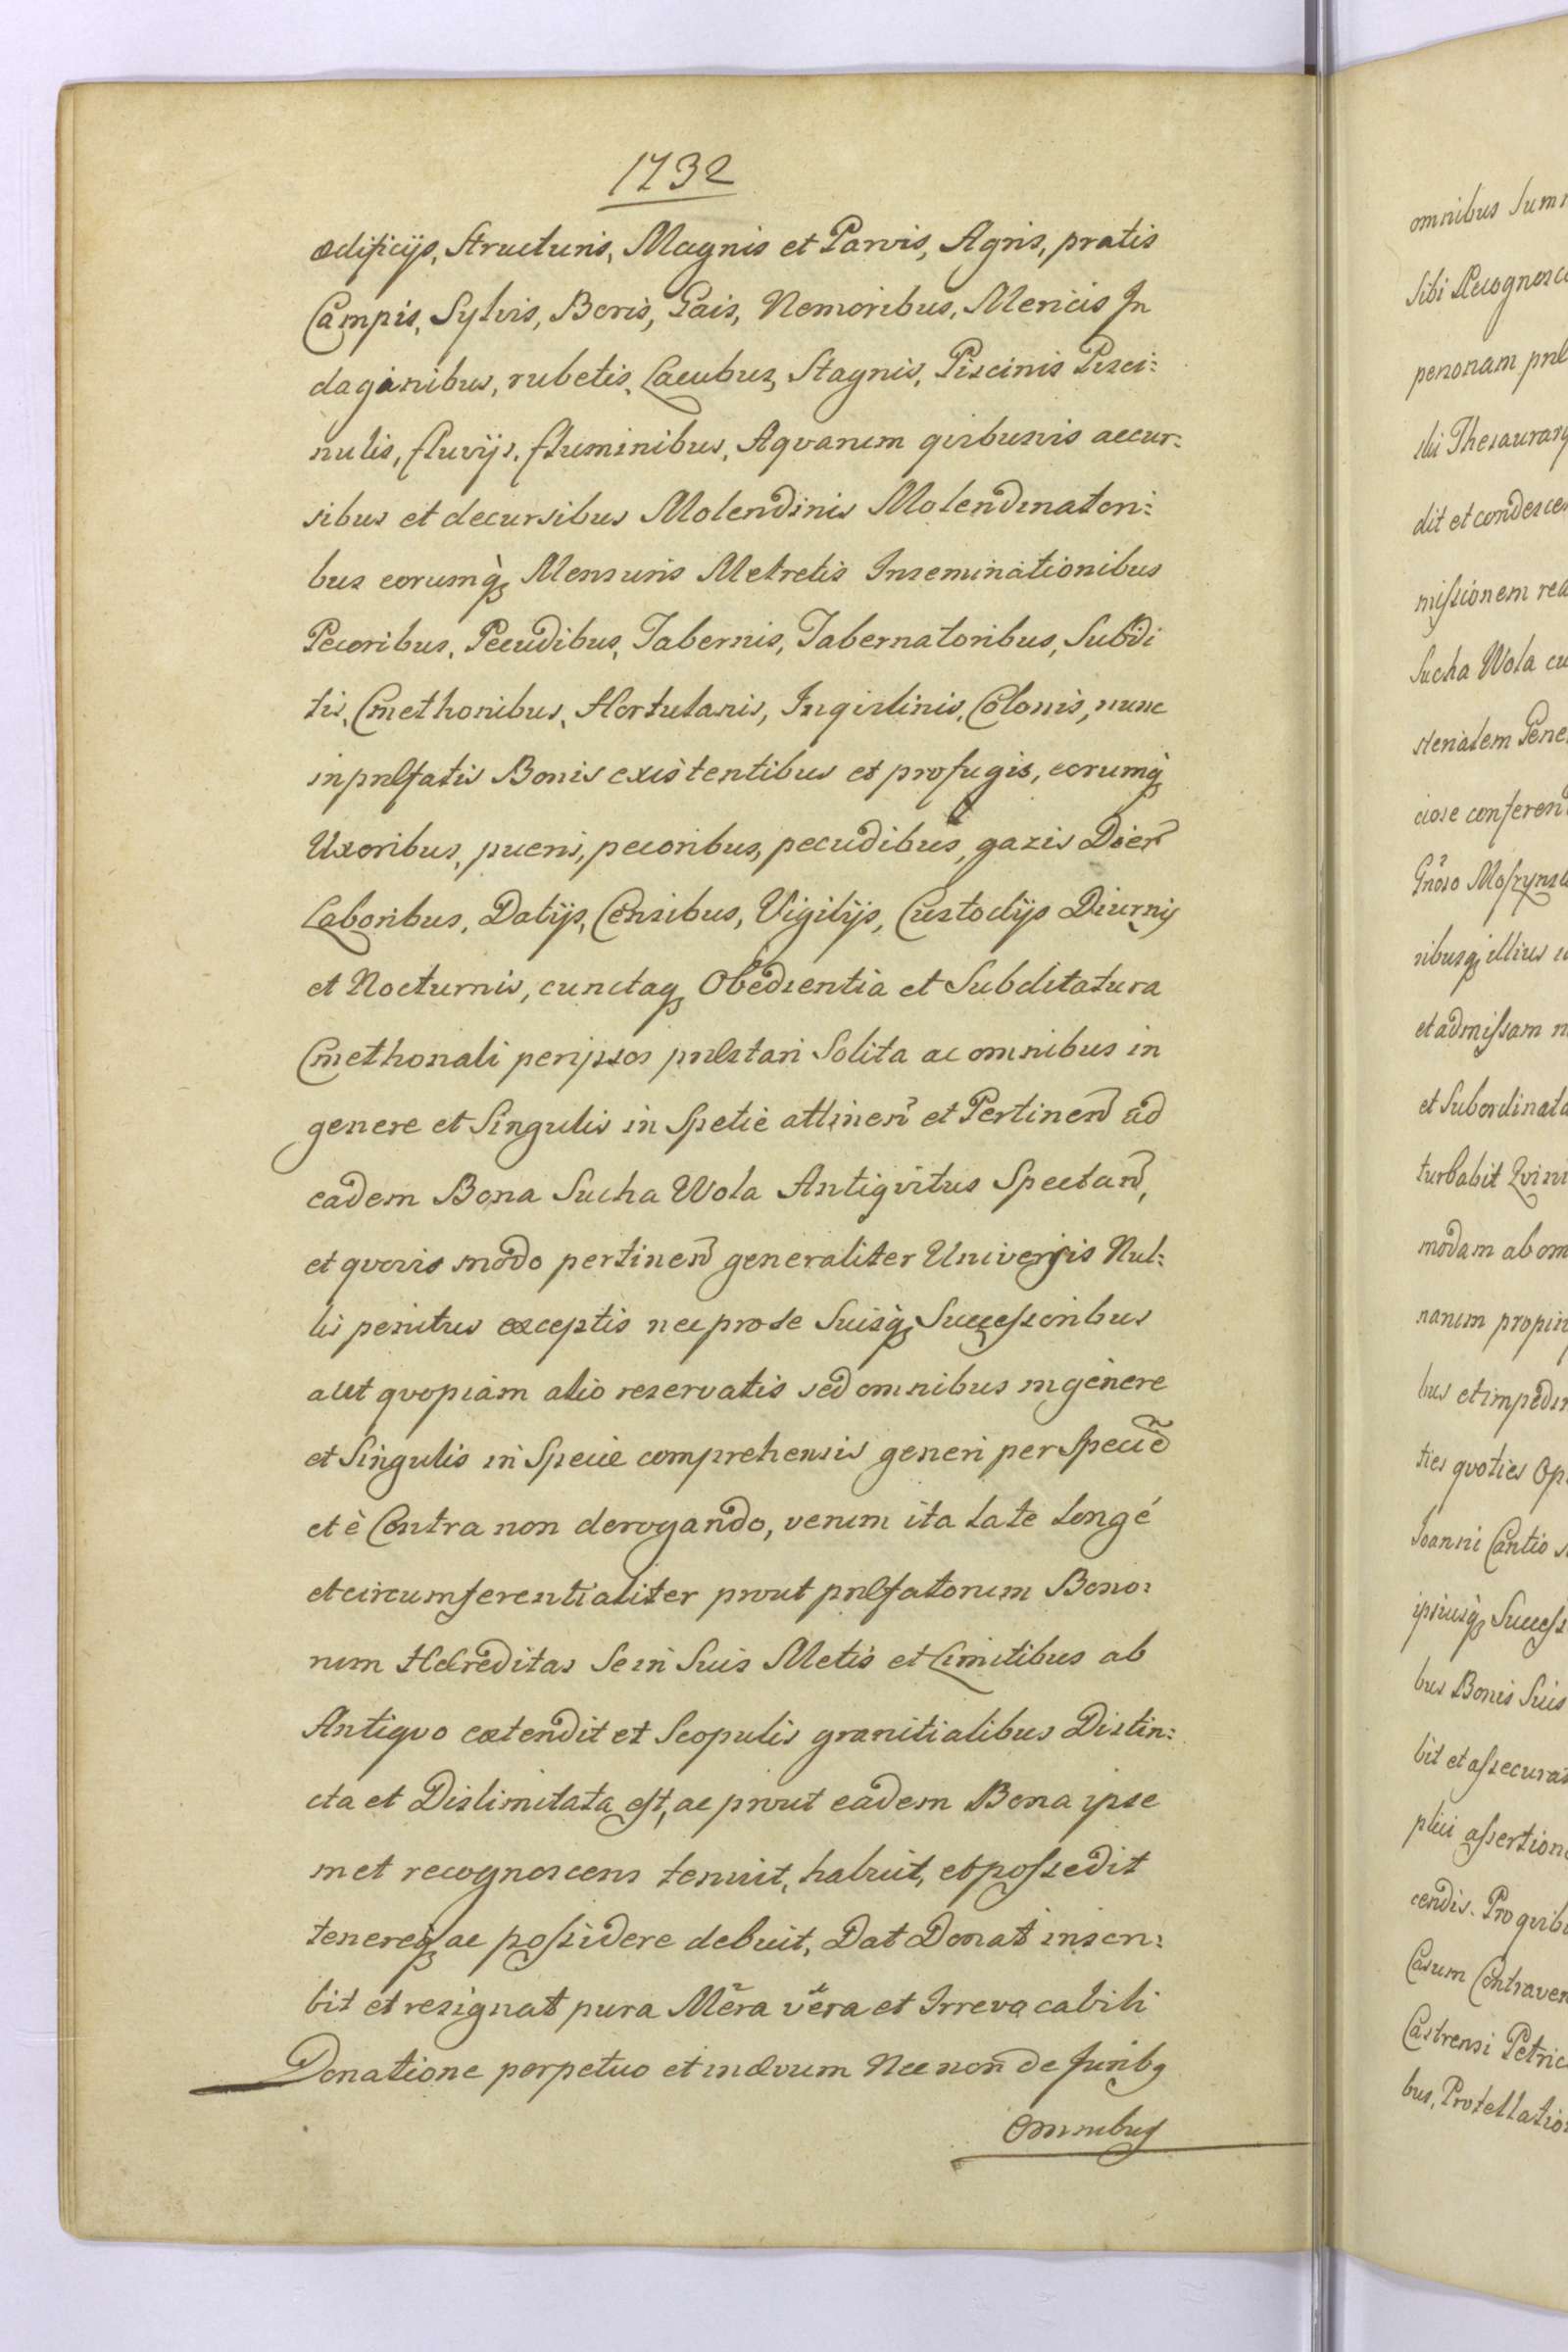 1732
ædificijs, Structuris, Magnis et Parvis, Agris, pratis
Campis, Sylvis, Boris, Gais, Nemoribus, Mericis In
daginibus, rubetis, Lacubus, Stagnis, Piscinis Pisci:
nulis, fluvijs, fluminibus, Aqvarum qvibusvis accur:
sibus et decursibus Molendinis Molendinatori:
bus eorumq̀ Mensuris Metretis Inseminationibus
Pecoribus, Pecudibus, Tabernis, Tabernatoribus, Subdi
tis, Cmethonibus, Hortulanis, Inqvilinis, Colonis, nunc
in prælfatis Bonis existentibus et profugis, eorumq̀
Uxoribus, pueris, pecoribus, pecudibus, gazis Dier̃
Laboribus, Datijs, Censibus, Vigilijs, Custodijs Diurnis
et Nocturnis, cunctaq Obedientia et Subditatura
Cmethonali peripsos prælstari Solita ac omnibus in
genere et Singulis in Spetie attineñ et Pertineñ ad
eadem Bona Sucha Wola Antiqvitus Spectañ,
et qvovis modo pertineñ generaliter Universis Nul:
lis penitus exceptis nec pro se Suisq̀ Successoribus
aut qvopiam alio reservatis sed omnibus in genere
et Singulis in Specie comprehensis generi per Specie͂
et è Contra non derogando, verum ita late longé
et circumferentialiter prout prælfatorum Bono:
rum Hæreditas Se in Suis Metis et Limitibus ab
Antiqvo extendit et Scopulis granitialibus Distin:
cta et Dislimitata est, ac prout eadem Bona ipse
met recognoscens tenuit, habuit, et possedit
tenereq ac possidere debuit, Dat Donat inscri:
bit et resignat pura Mera vera et Irrevocabili
Donatione perpetuo et in ævum Nec non de Juribg
Omnibus
omnibus Sum
Sibi Recognosce
personam
sui Thesaurar
dit et condesce
missionem rea
Sucha Wola cu
sterialem Gene
ciose conferen
Gnoso
ribusq illius
et admissam n
et Subordinata
turbabit Qvin
modam ab om
narum propin
bus et impedi
ties qvoties Op
Joanni Cantio
ipsiusq̀ Success
bus Bonis Suis
bit et assecura
plici assertion
cendis. Pro qvib
Casum Contraven
Castrensi Petric
bus, Protellatio